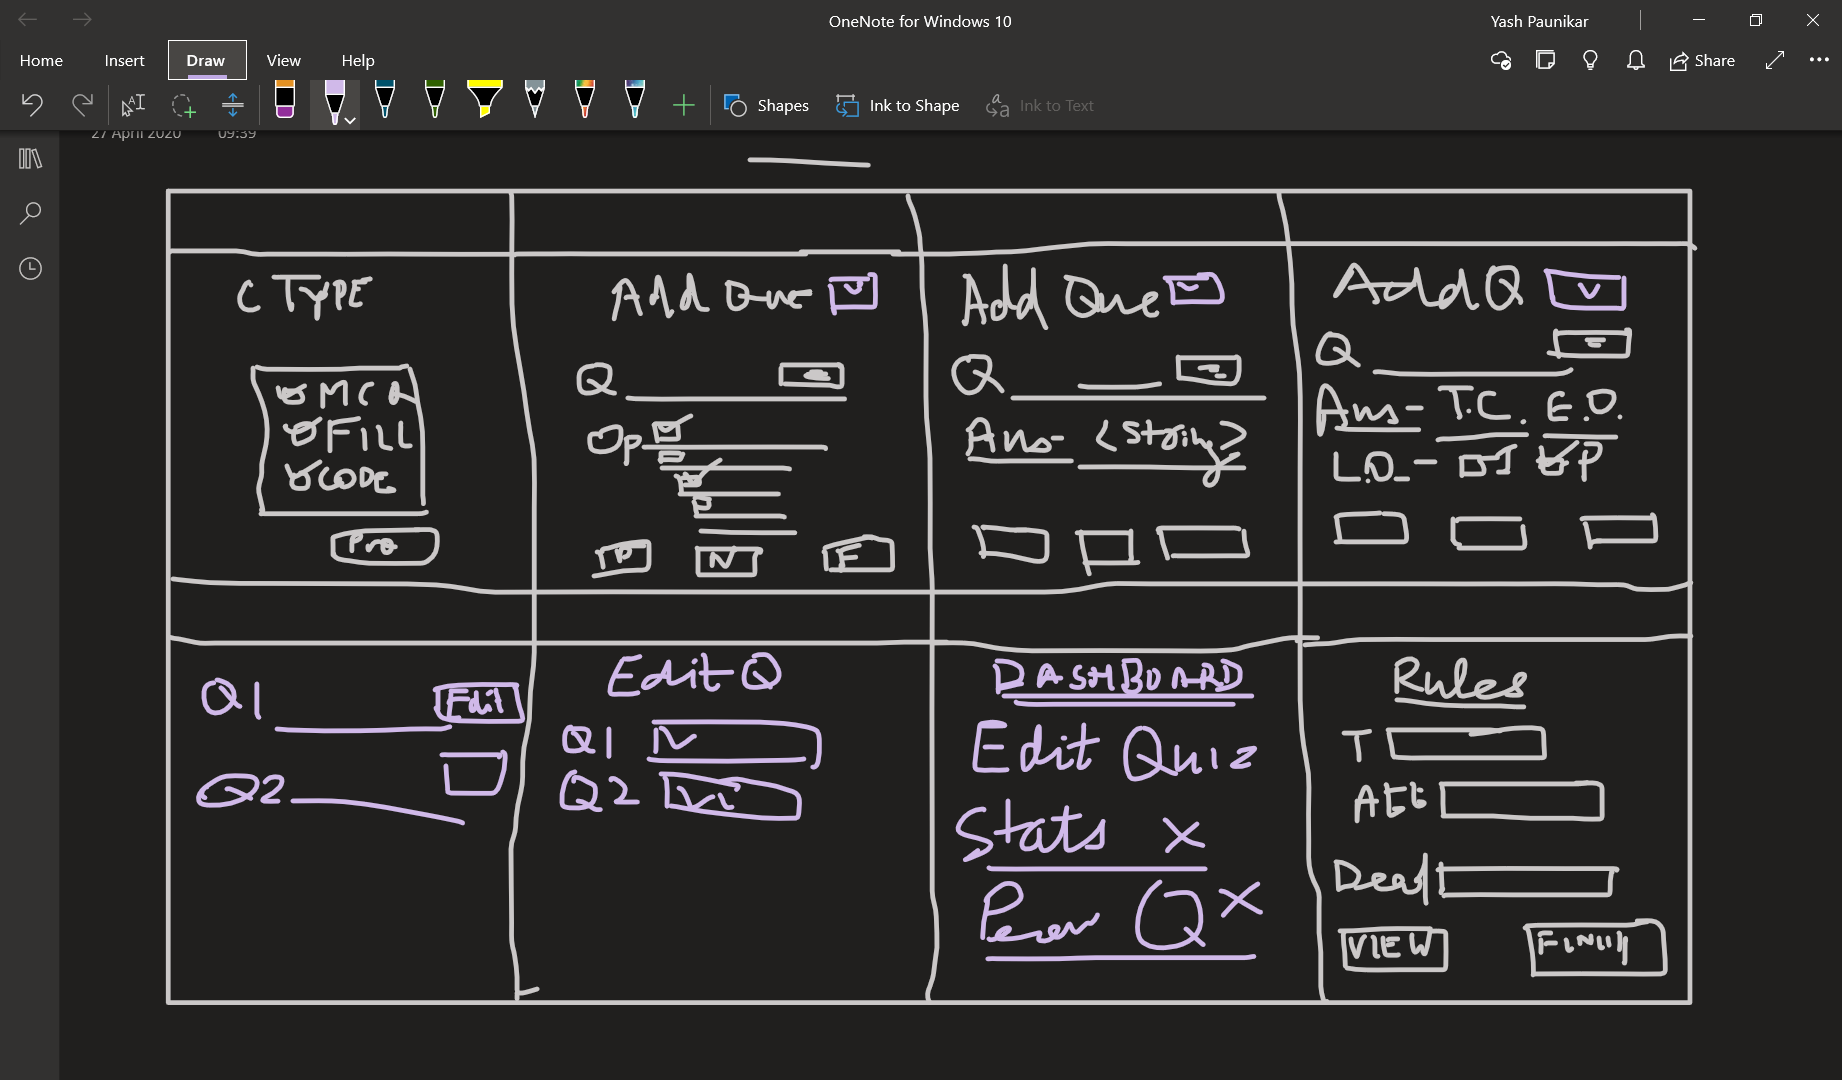 OneNote for Windows 10
Yash Paunikar
Home Insert Draw View Help
Share
Shapes Ink to Shape Ink to Text
27 April 2020 09:39
C TYPE
MCQ
FILL
CODE
Pro
Add Que
Q
Op
P N F
Add Que
Q
Ans- <String>
Add Q
Q
Ans- T.C. E.O.
L.O. - J P
Q1 Edit
Q2
Edit Q
Q1
Q2
DASHBOARD
Edit Quiz
Stats X
Q X
Rules
T
Att
VIEW